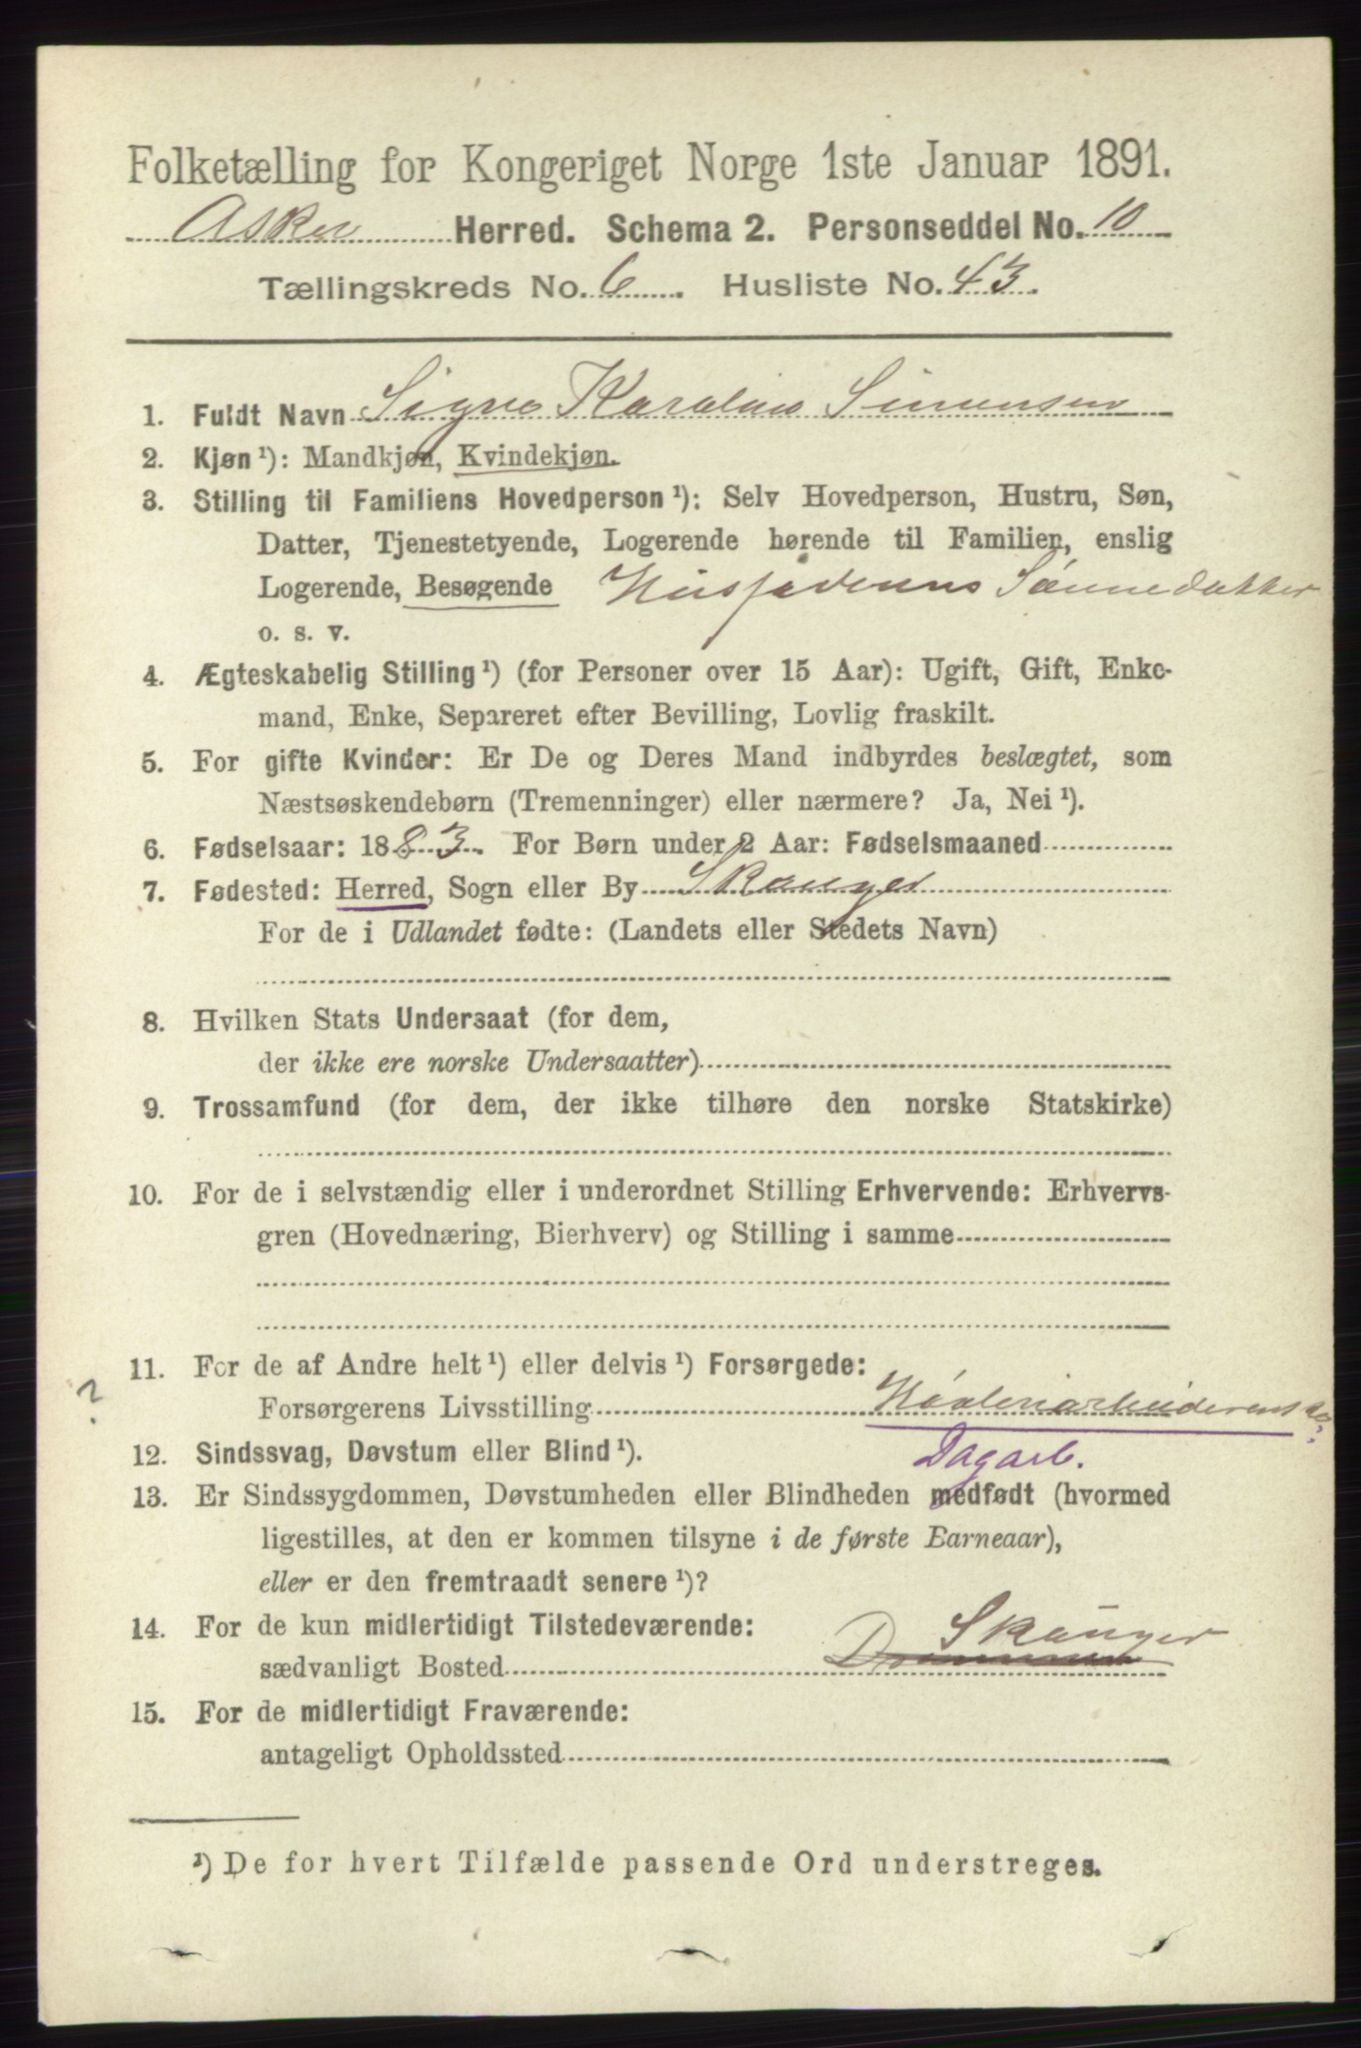 Folketælling for Kongeriget Norge 1ste Januar 1891.
Asker Herred. Schema 2. Personseddel No. 10
Tællingskreds No. 6. Husliste No. 43.
1. Fuldt Navn Signe Karoline Simensen
2. Kjøn¹): Mandkjøn, Kvindekjøn.
3. Stilling til Familiens Hovedperson¹): Selv Hovedperson, Hustru, Søn,
Datter, Tjenestetyende, Logerende hørende til Familien, enslig
Logerende, Besøgende Husfaderens Sønnedatter
o. s. v.
4. Ægteskabelig Stilling¹) (for Personer over 15 Aar): Ugift, Gift, Enke-
mand, Enke, Separeret efter Bevilling, Lovlig fraskilt.
5. For gifte Kvinder: Er De og Deres Mand indbyrdes beslægtet, som
Næstsøskendebørn (Tremenninger) eller nærmere? Ja, Nei¹).
6. Fødselsaar: 1883. For Børn under 2 Aar: Fødselsmaaned
7. Fødested: Herred, Sogn eller By Skauger
For de i Udlandet fødte: (Landets eller Stedets Navn)
8. Hvilken Stats Undersaat (for dem,
der ikke ere norske Undersaatter)
9. Trossamfund (for dem, der ikke tilhøre den norske Statskirke)
10. For de i selvstændig eller i underordnet Stilling Erhvervende: Erhvervs-
gren (Hovednæring, Bierhverv) og Stilling i samme
11. For de af Andre helt¹) eller delvis¹) Forsørgede:
? Forsørgerens Livsstilling
12. Sindssvag, Døvstum eller Blind¹). Dagarb.
13. Er Sindssygdommen, Døvstumheden eller Blindheden medfødt (hvormed
ligestilles, at den er kommen tilsyne i de første Barneaar),
eller er den fremtraadt senere¹)?
14. For de kun midlertidigt Tilstedeværende: Skauger
sædvanligt Bosted
15. For de midlertidigt Fraværende:
antageligt Opholdssted
¹) De for hvert Tilfælde passende Ord understreges.